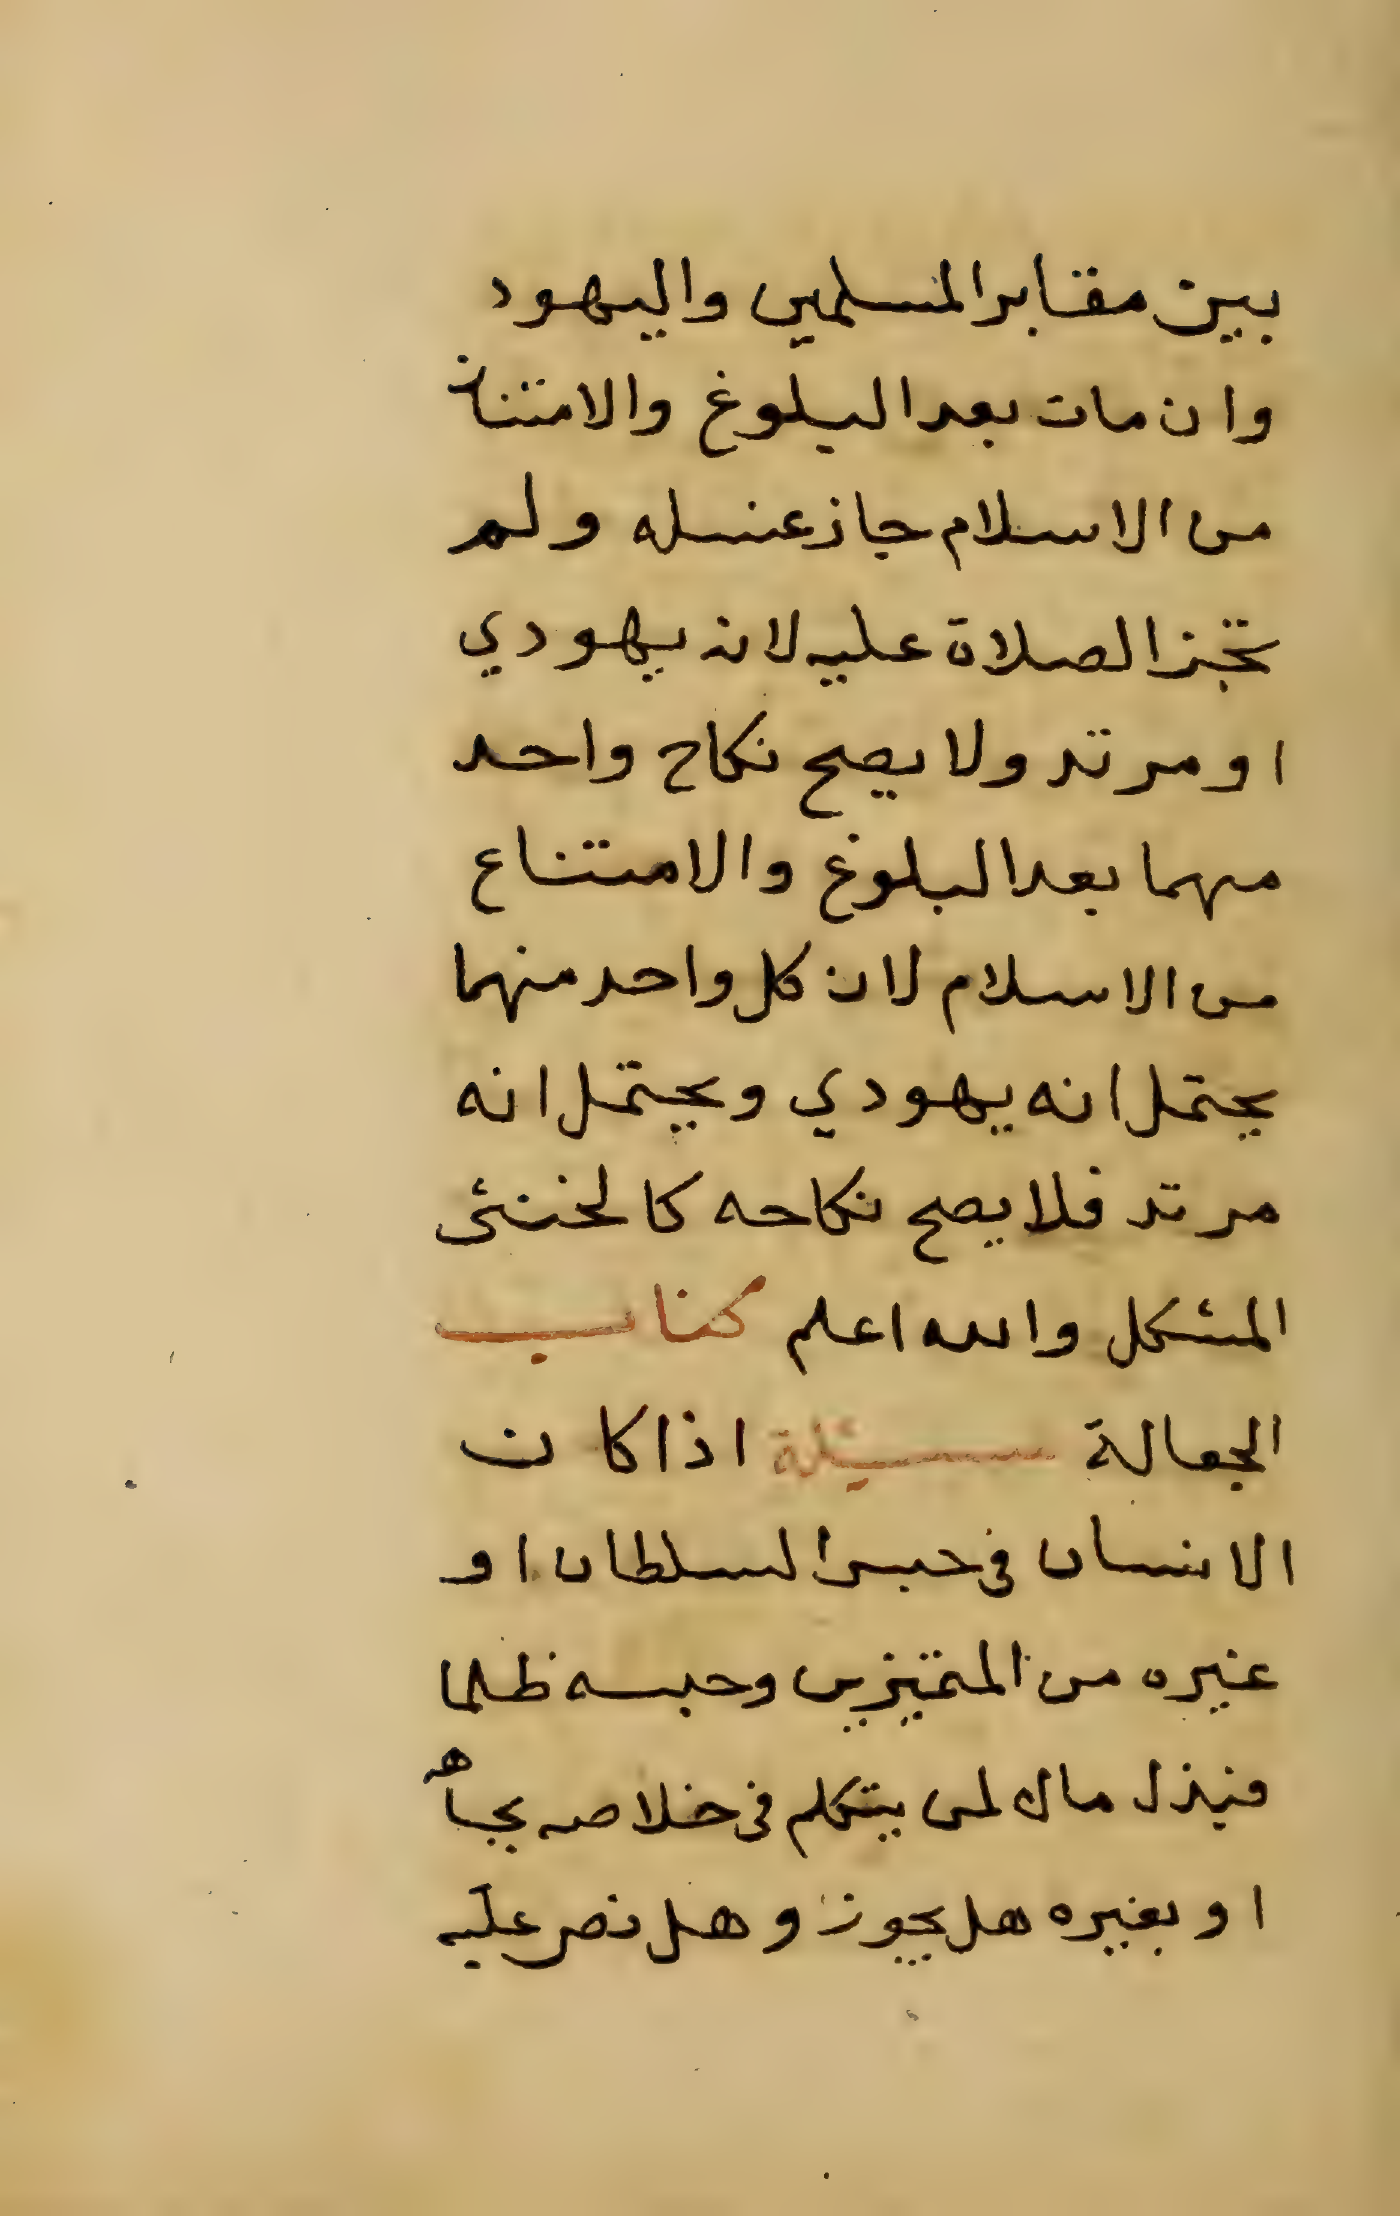 بين مقابر المسلمين واليهود
وان مات بعد البلوغ والامتناع
من الاسلام جاز غسله ولم
تجز الصلاة عليه لانه يهودي
او مرتد ولا يصح نكاح واحد
منهما بعد البلوغ والامتناع
من الاسلام لان كل واحد منهما
يحتمل انه يهودي ويحتمل انه
مرتد فلا يصح نكاحه كالخنثى
المشكل والله اعلم كتاب
الجعالة مسئلة اذا كان
الانسان في حبس السلطان او
غيره من المتميزين وحبسه ظلما
فبذل مال لمن يتكلم في خلاصه بجاهه
او بغيره هل يجوز وهل نص عليه